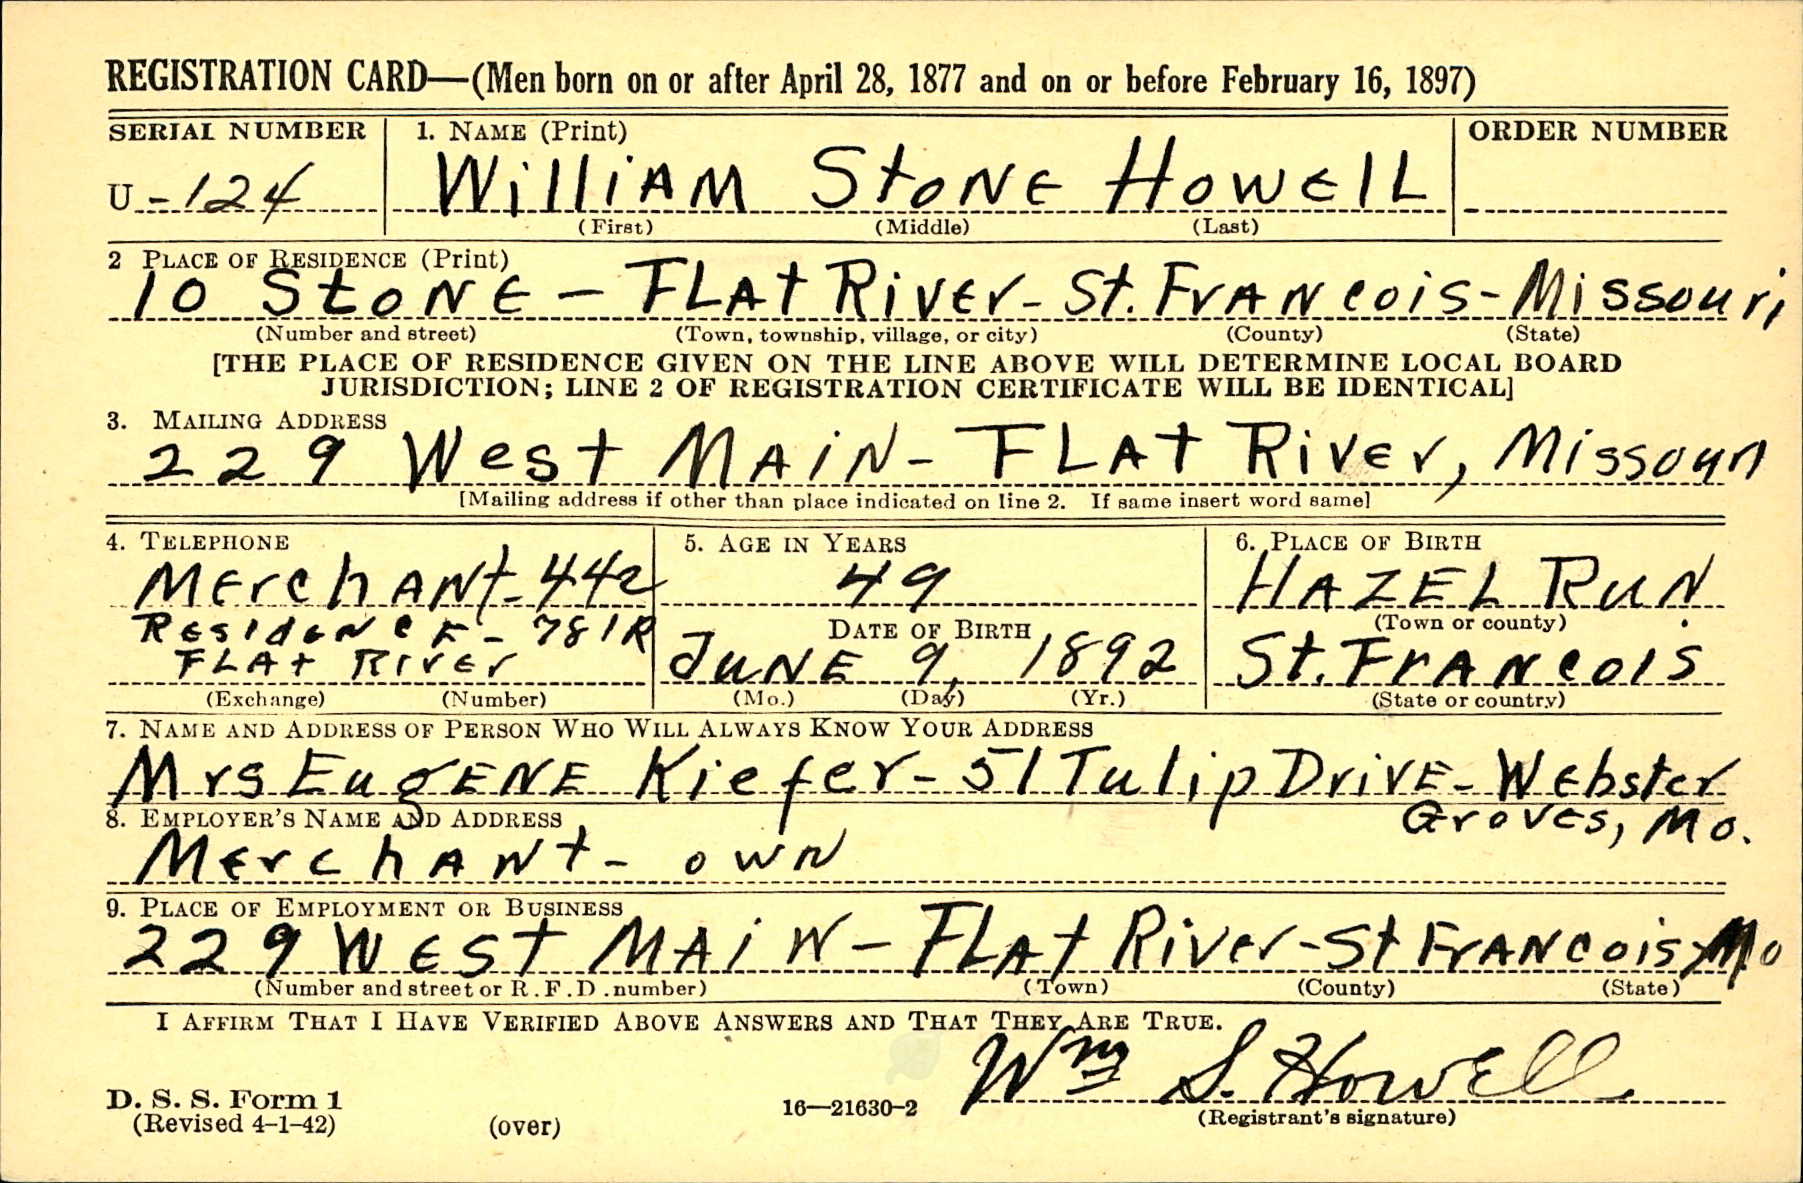 REGISTRATION CARD—(Men born on or after April 28, 1877 and on or before February 16, 1897)
SERIAL NUMBER 1. NAME (Print) ORDER NUMBER
U -124 William Stone Howell
(First) (Middle) (Last)
2 PLACE OF RESIDENCE (Print)
10 Stone - Flat River - St. Francois - Missouri
(Number and street) (Town, township, village, or city) (County) (State)
[THE PLACE OF RESIDENCE GIVEN ON THE LINE ABOVE WILL DETERMINE LOCAL BOARD
JURISDICTION; LINE 2 OF REGISTRATION CERTIFICATE WILL BE IDENTICAL]
3. MAILING ADDRESS
229 West Main - Flat River, Missouri
[Mailing address if other than place indicated on line 2. If same insert word same]
4. TELEPHONE 5. AGE IN YEARS 6. PLACE OF BIRTH
Merchant - 442 49 Hazel Run
Residence - 781R DATE OF BIRTH (Town or county)
Flat River June 9, 1892 St. Francois
(Exchange) (Number) (Mo.) (Day) (Yr.) (State or country)
7. NAME AND ADDRESS OF PERSON WHO WILL ALWAYS KNOW YOUR ADDRESS
Mrs Eugene Kiefer - 51 Tulip Drive - Webster
Groves, Mo.
8. EMPLOYER'S NAME AND ADDRESS
Merchant - own
9. PLACE OF EMPLOYMENT OR BUSINESS
229 West Main - Flat River - St Francois, Mo
(Number and street or R.F.D. number) (Town) (County) (State)
I AFFIRM THAT I HAVE VERIFIED ABOVE ANSWERS AND THAT THEY ARE TRUE.
Wm S. Howell
D. S. S. Form 1
(Revised 4-1-42) (over) 16—21630-2 (Registrant's signature)